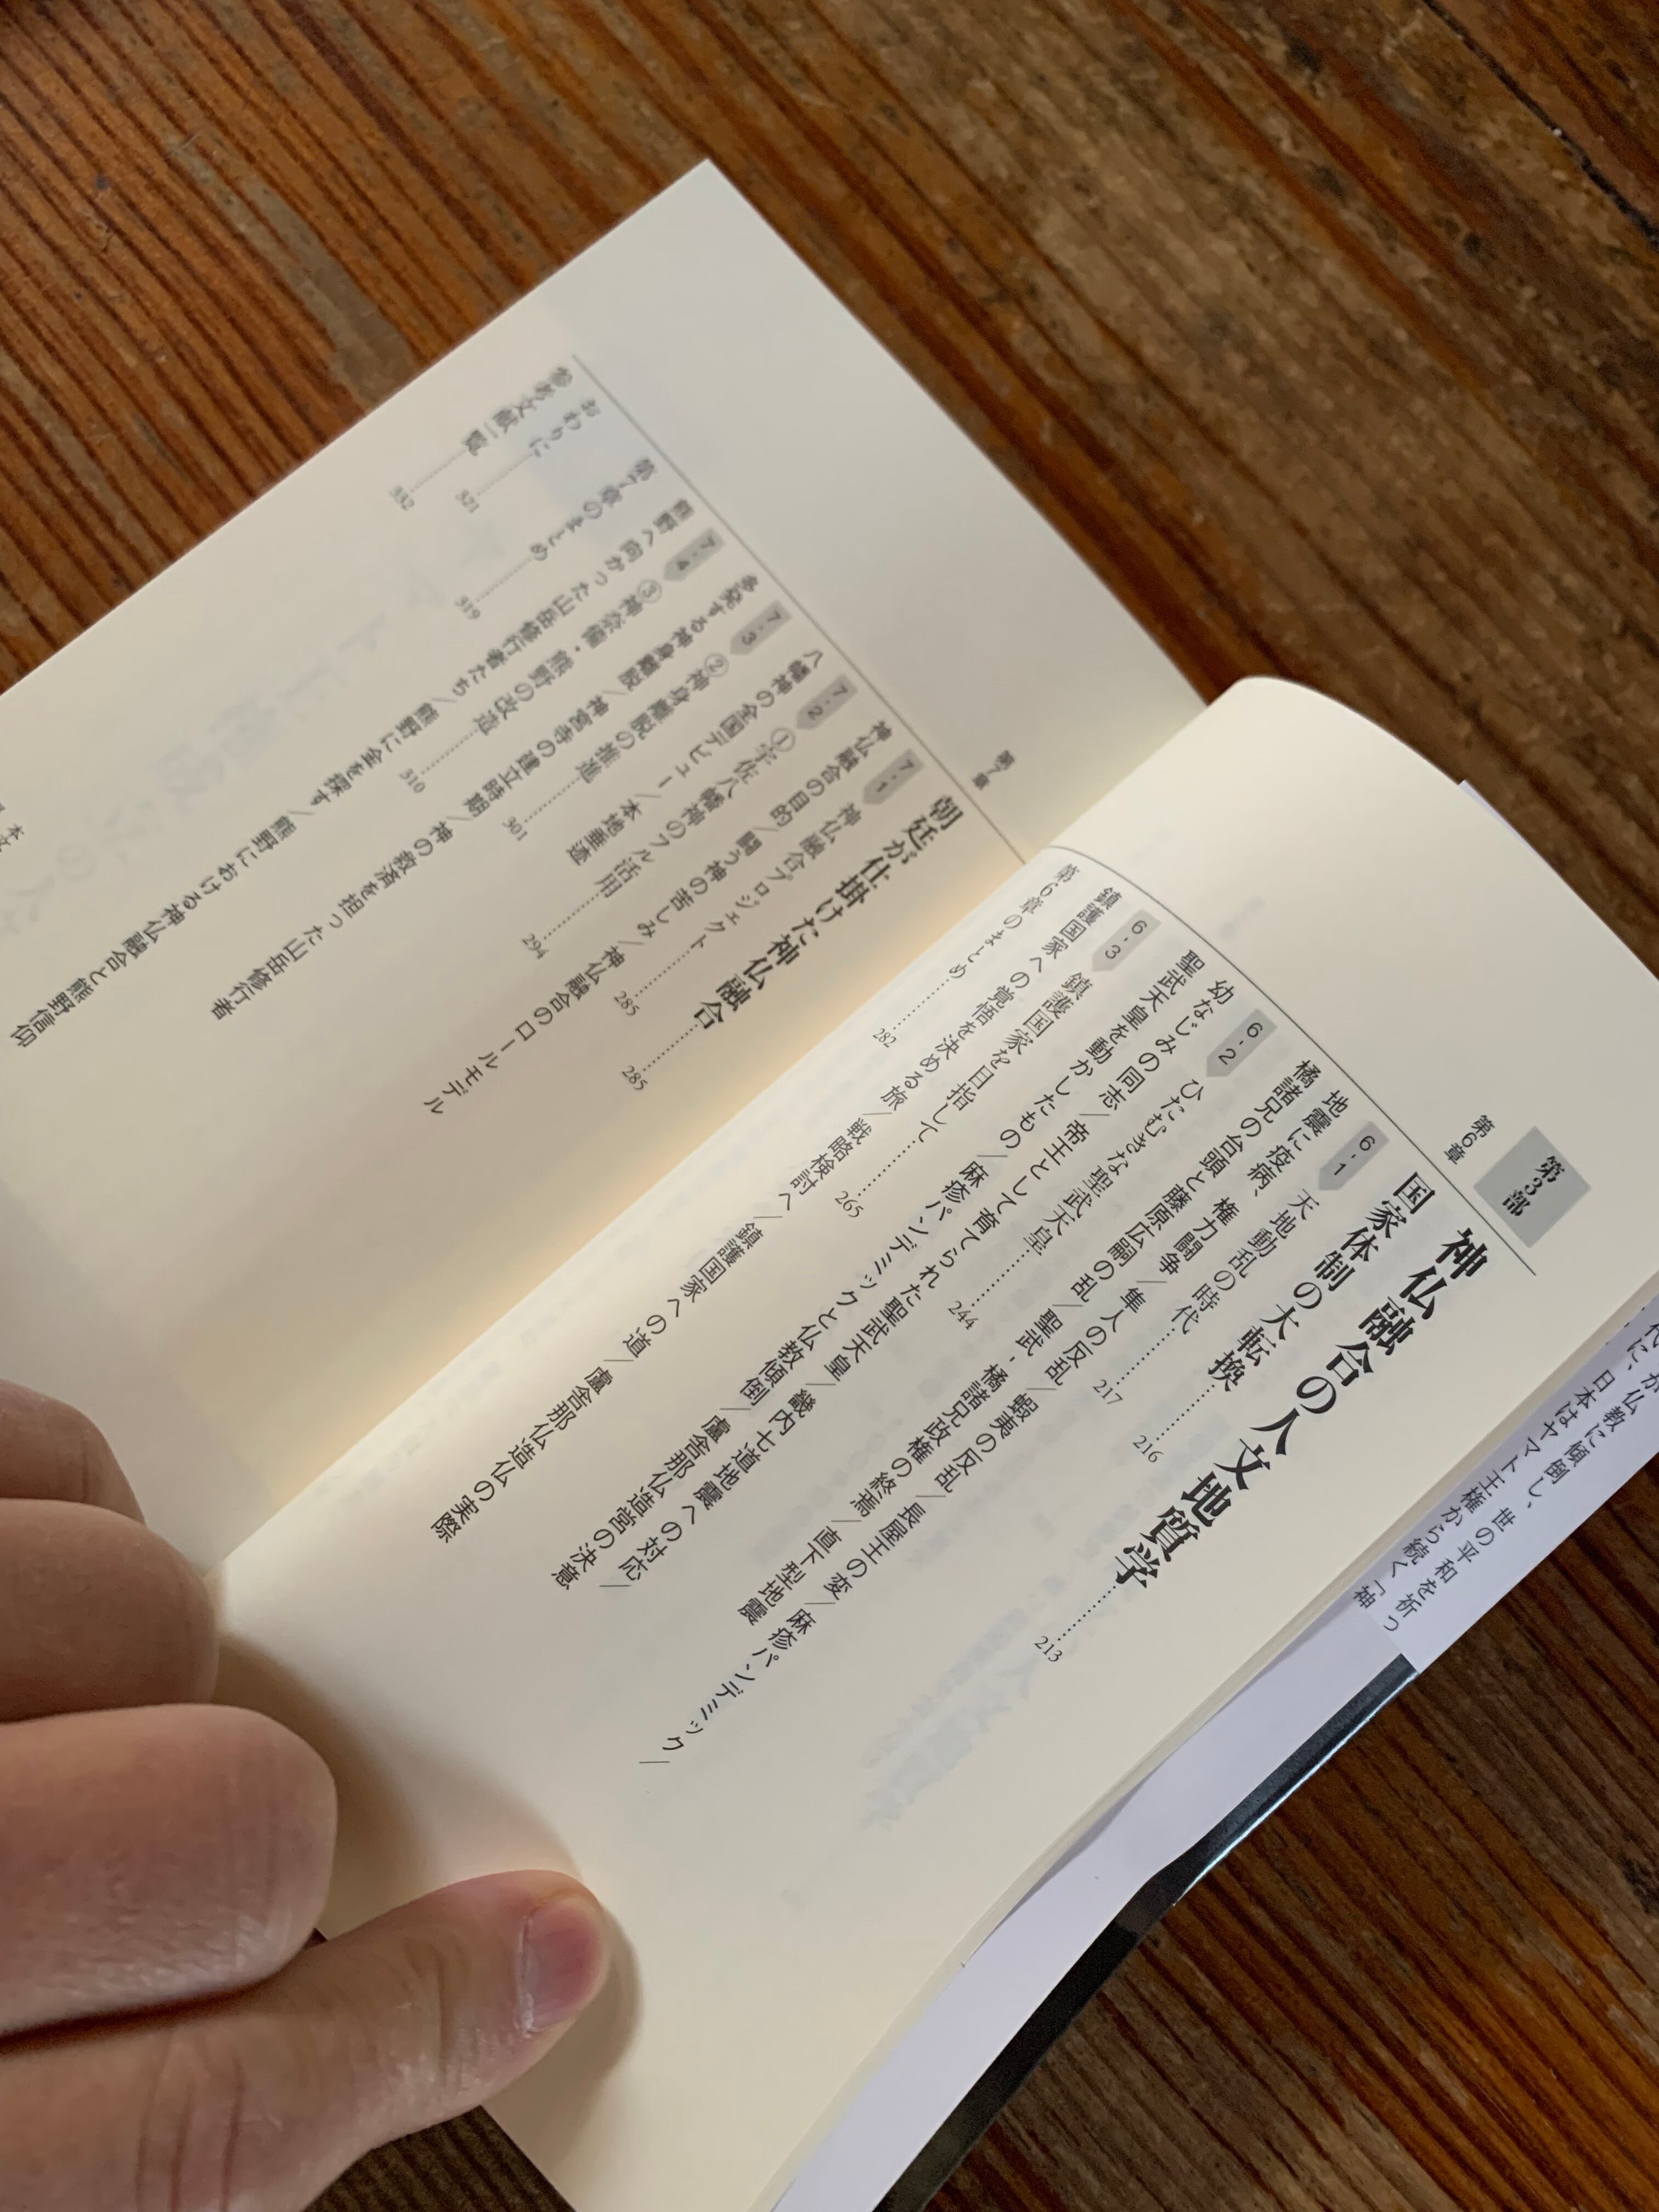 第3部 神仏融合の人文地質学……213
第6章 国家体制の大転換……216
6・1 天地動乱の時代……217
地震に疫病、権力闘争/隼人の反乱/蝦夷の反乱/長屋王の変/麻疹パンデミック/
橘諸兄の台頭と藤原広嗣の乱/聖武‐橘諸兄政権の終焉/直下型地震
6・2 ひたむきな聖武天皇……244
幼なじみの同志/帝王として育てられた聖武天皇/畿内七道地震への対応/
聖武天皇を動かしたもの/麻疹パンデミックと仏教傾倒/盧舎那仏造営の決意
6・3 鎮護国家を目指して……265
鎮護国家への覚悟を決める旅/戦略検討へ/鎮護国家への道/盧舎那仏造仏の実際
第6章のまとめ……282
第7章 朝廷が仕掛けた神仏融合……285
7・1 神仏融合プロジェクト……285
神仏融合の目的/闘う神の苦しみ/神仏融合のロールモデル
7・2 ①宇佐八幡神のフル活用……294
八幡神の全国デビュー/本地垂迹
7・3 ②神身離脱の推進……301
多発する神身離脱/神宮寺の建立時期/神の救済を担った山岳修行者
7・4 ③神奈備・熊野の改造……310
熊野へ向かった山岳修行者たち/熊野に金を探す/熊野における神仏融合と熊野信仰
第7章のまとめ……319
おわりに……321
参考文献一覧……332
仏教に傾倒し、世の平和を祈っ
日本はヤマト王権から続く「神